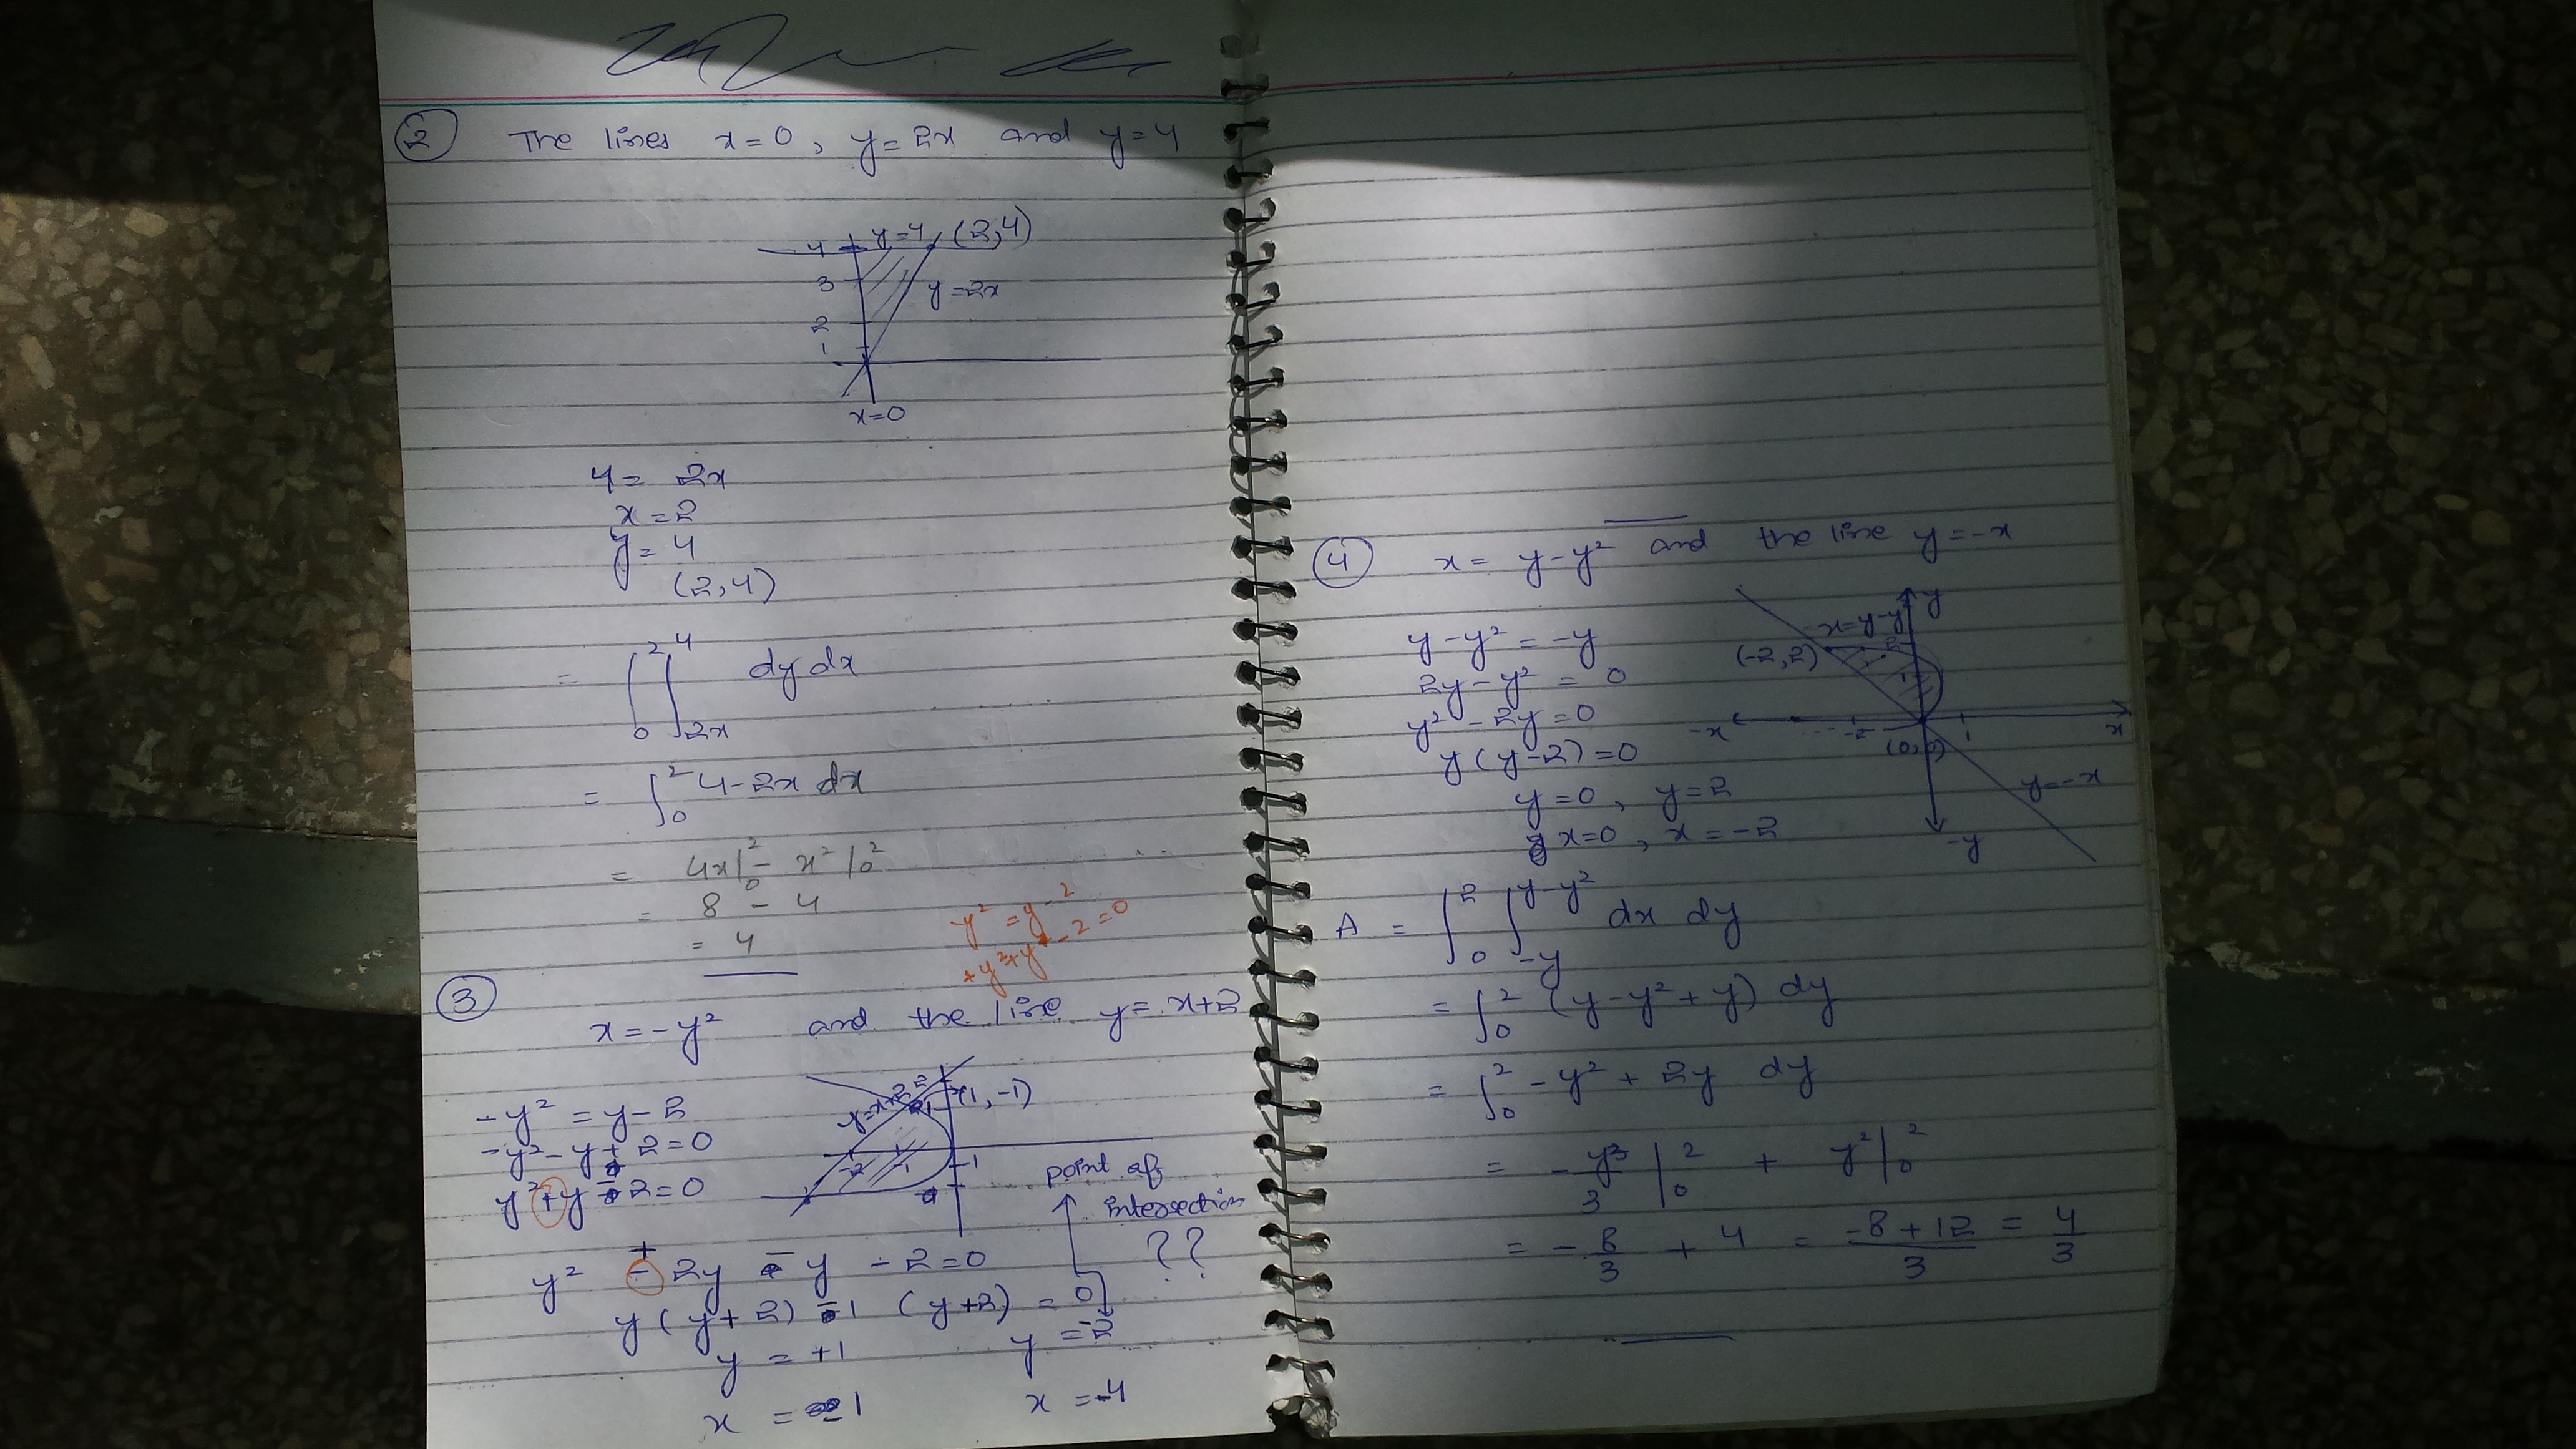 2 The lines x=0, y=2x and y=4
4 y=4 (2,4)
3 y=2x
2
1
x=0
4= 2x
x=2
y=4
(2,4)
= ∫₀² ∫₂ₓ⁴ dy dx
= ∫₀² 4-2x dx
= 4x|₀² - x²|₀²
= 8 - 4
= 4
y² = y-2
+y²+y-2=0
3 x=-y² and the line y=x+2
y=x+2 2 (1,-1)
-2 -1 -1
-y² = y-2
-y²-y+2=0
y²+y-2=0
point of intersection ??
y² + 2y - y - 2=0
y(y+2) -1 (y+2) = 0
y = +1 y = -2
x = -1 x = -4
4 x= y-y² and the line y=-x
y
x=y-y²
(-2,2) 2
1
-x -2 (0,0) 1 x
y=-x
-y
y-y² = -y
2y-y² = 0
y²-2y=0
y(y-2)=0
y=0, y=2
x=0, x=-2
A = ∫₀² ∫₋ᵧ^(y-y²) dx dy
= ∫₀² (y-y²+y) dy
= ∫₀² -y² + 2y dy
= -y³/3 |₀² + y²|₀²
= -8/3 + 4 = (-8+12)/3 = 4/3